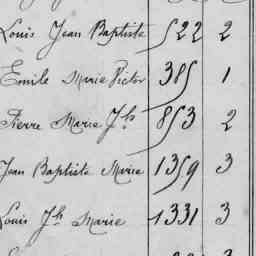 Louis Jean Baptiste 522 2
Emile Marie Victor 385 1
Pierre Marie Jh 853 2
Jean Baptiste Marie 1359 3
Louis Jh Marie 1331 3